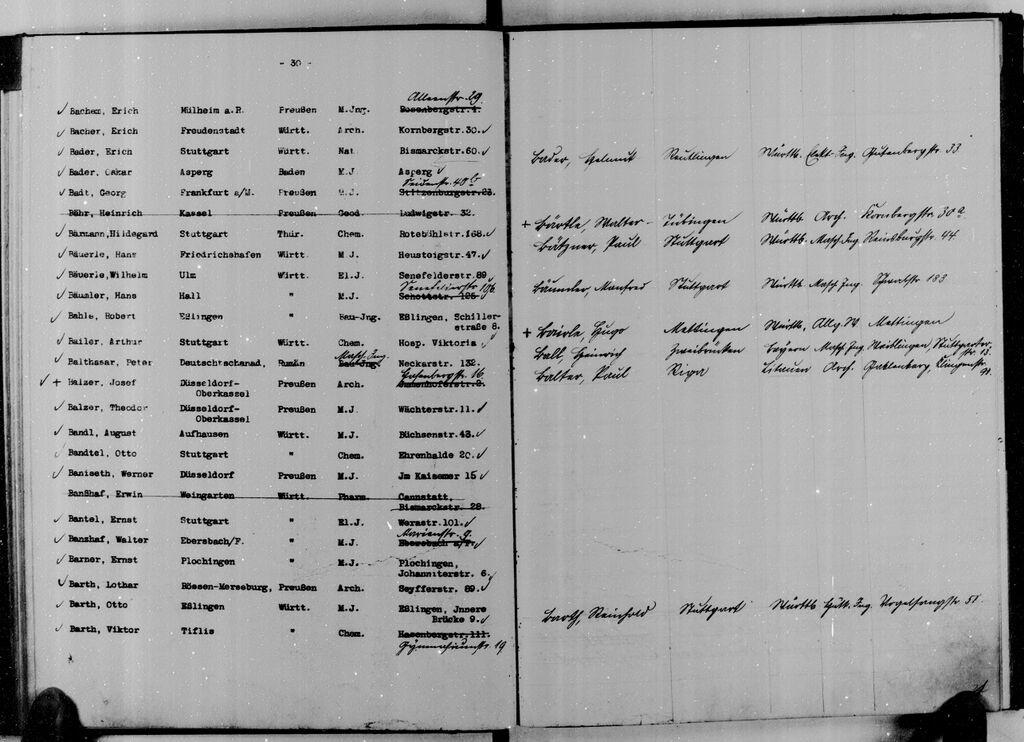 - 30 -
Alleenstr. 29.
Bachem, Erich Mülheim a.R. Preußen M.Jng. Rosenbergstr.4.
Bacher, Erich Freudenstadt Württ. Arch. Kornbergstr.30.
Bader, Erich Stuttgart Württ. Nat. Bismarckstr.60.
Bader, Oskar Asperg Baden M.J. Asperg
Seidenstr. 40 b
Badt, Georg Frankfurt a/M. Preußen M.J. Stitzenburgstr.23.
Bähr, Heinrich Kassel Preußen Geod. Ludwigstr. 32.
Bärmann,Hildegard Stuttgart Thür. Chem. Rotebühlstr.168.
Bäuerle, Hans Friedrichshafen Württ. M.J. Heusteigstr.47.
Bäuerle,Wilhelm Ulm Württ. El.J. Senefelderstr.89
Senefelderstr 106.
Bäumler, Hans Hall " M.J. Schottstr. 126.
Bahle, Robert Eßlingen " Bau-Jng. Eßlingen, Schiller-
straße 8.
Bailer, Arthur Stuttgart Württ. Chem. Hosp. Viktoria
Masch.Ing.
Balthasar, Peter Deutschtschanad, Rumän. Bau-Jng. Neckarstr. 132.
Hasenbergstr. 16.
+ Balzer, Josef Düsseldorf- Preußen Arch.
Oberkassel
Balzer, Theodor Düsseldorf- Preußen M.J. Wächterstr.11.
Oberkassel
Bandl, August Aufhausen Württ. M.J. Büchsenstr.43.
Bandtel, Otto Stuttgart " Chem. Ehrenhalde 20.
Baniseth, Werner Düsseldorf Preußen M.J. Jm Kaisemer 15
Banßhaf, Erwin Weingarten Württ. Pharm. Cannstatt,
Bismarckstr. 28.
Bantel, Ernst Stuttgart " El.J. Werastr.101.
Marienstr. 9.
Banzhaf, Walter Ebersbach/F. " M.J. Ebersbach a/F.
Barner, Ernst Plochingen " M.J. Plochingen,
Johanniterstr. 6.
Barth, Lothar Rössen-Merseburg, Preußen Arch. Seyfferstr. 89.
Barth, Otto Eßlingen Württ. M.J. Eßlingen, Jnnere
Brücke 9.
Barth, Viktor Tiflis " Chem. Hasenbergstr.111.
Gymnasiumstr. 19
Bader, Helmut Reutlingen Württb. Elekt-Ing. Gutenbergstr. 33.
+ Bärtle, Walter Tübingen Württb. Arch. Kornbergstr. 30a
Bätzner, Paul Stuttgart Württb. Masch.Ing. Reinsburgstr. 44.
Bäumler, Manfred Stuttgart Württb. Masch.Ing. 183
+ Baierle, Hugo Mettingen Württb. Allg.W. Mettingen
Ball, Heinrich Zweibrücken Bayern Masch.Ing. Waiblingen, Stuttgarter-
str. 13.
Balter, Paul Riga Litauen Arch. Gablenberg, Klingenstr.
91.
Barth, Reinhold Stuttgart Württb. Hütt.Ing. Vogelsangstr 51